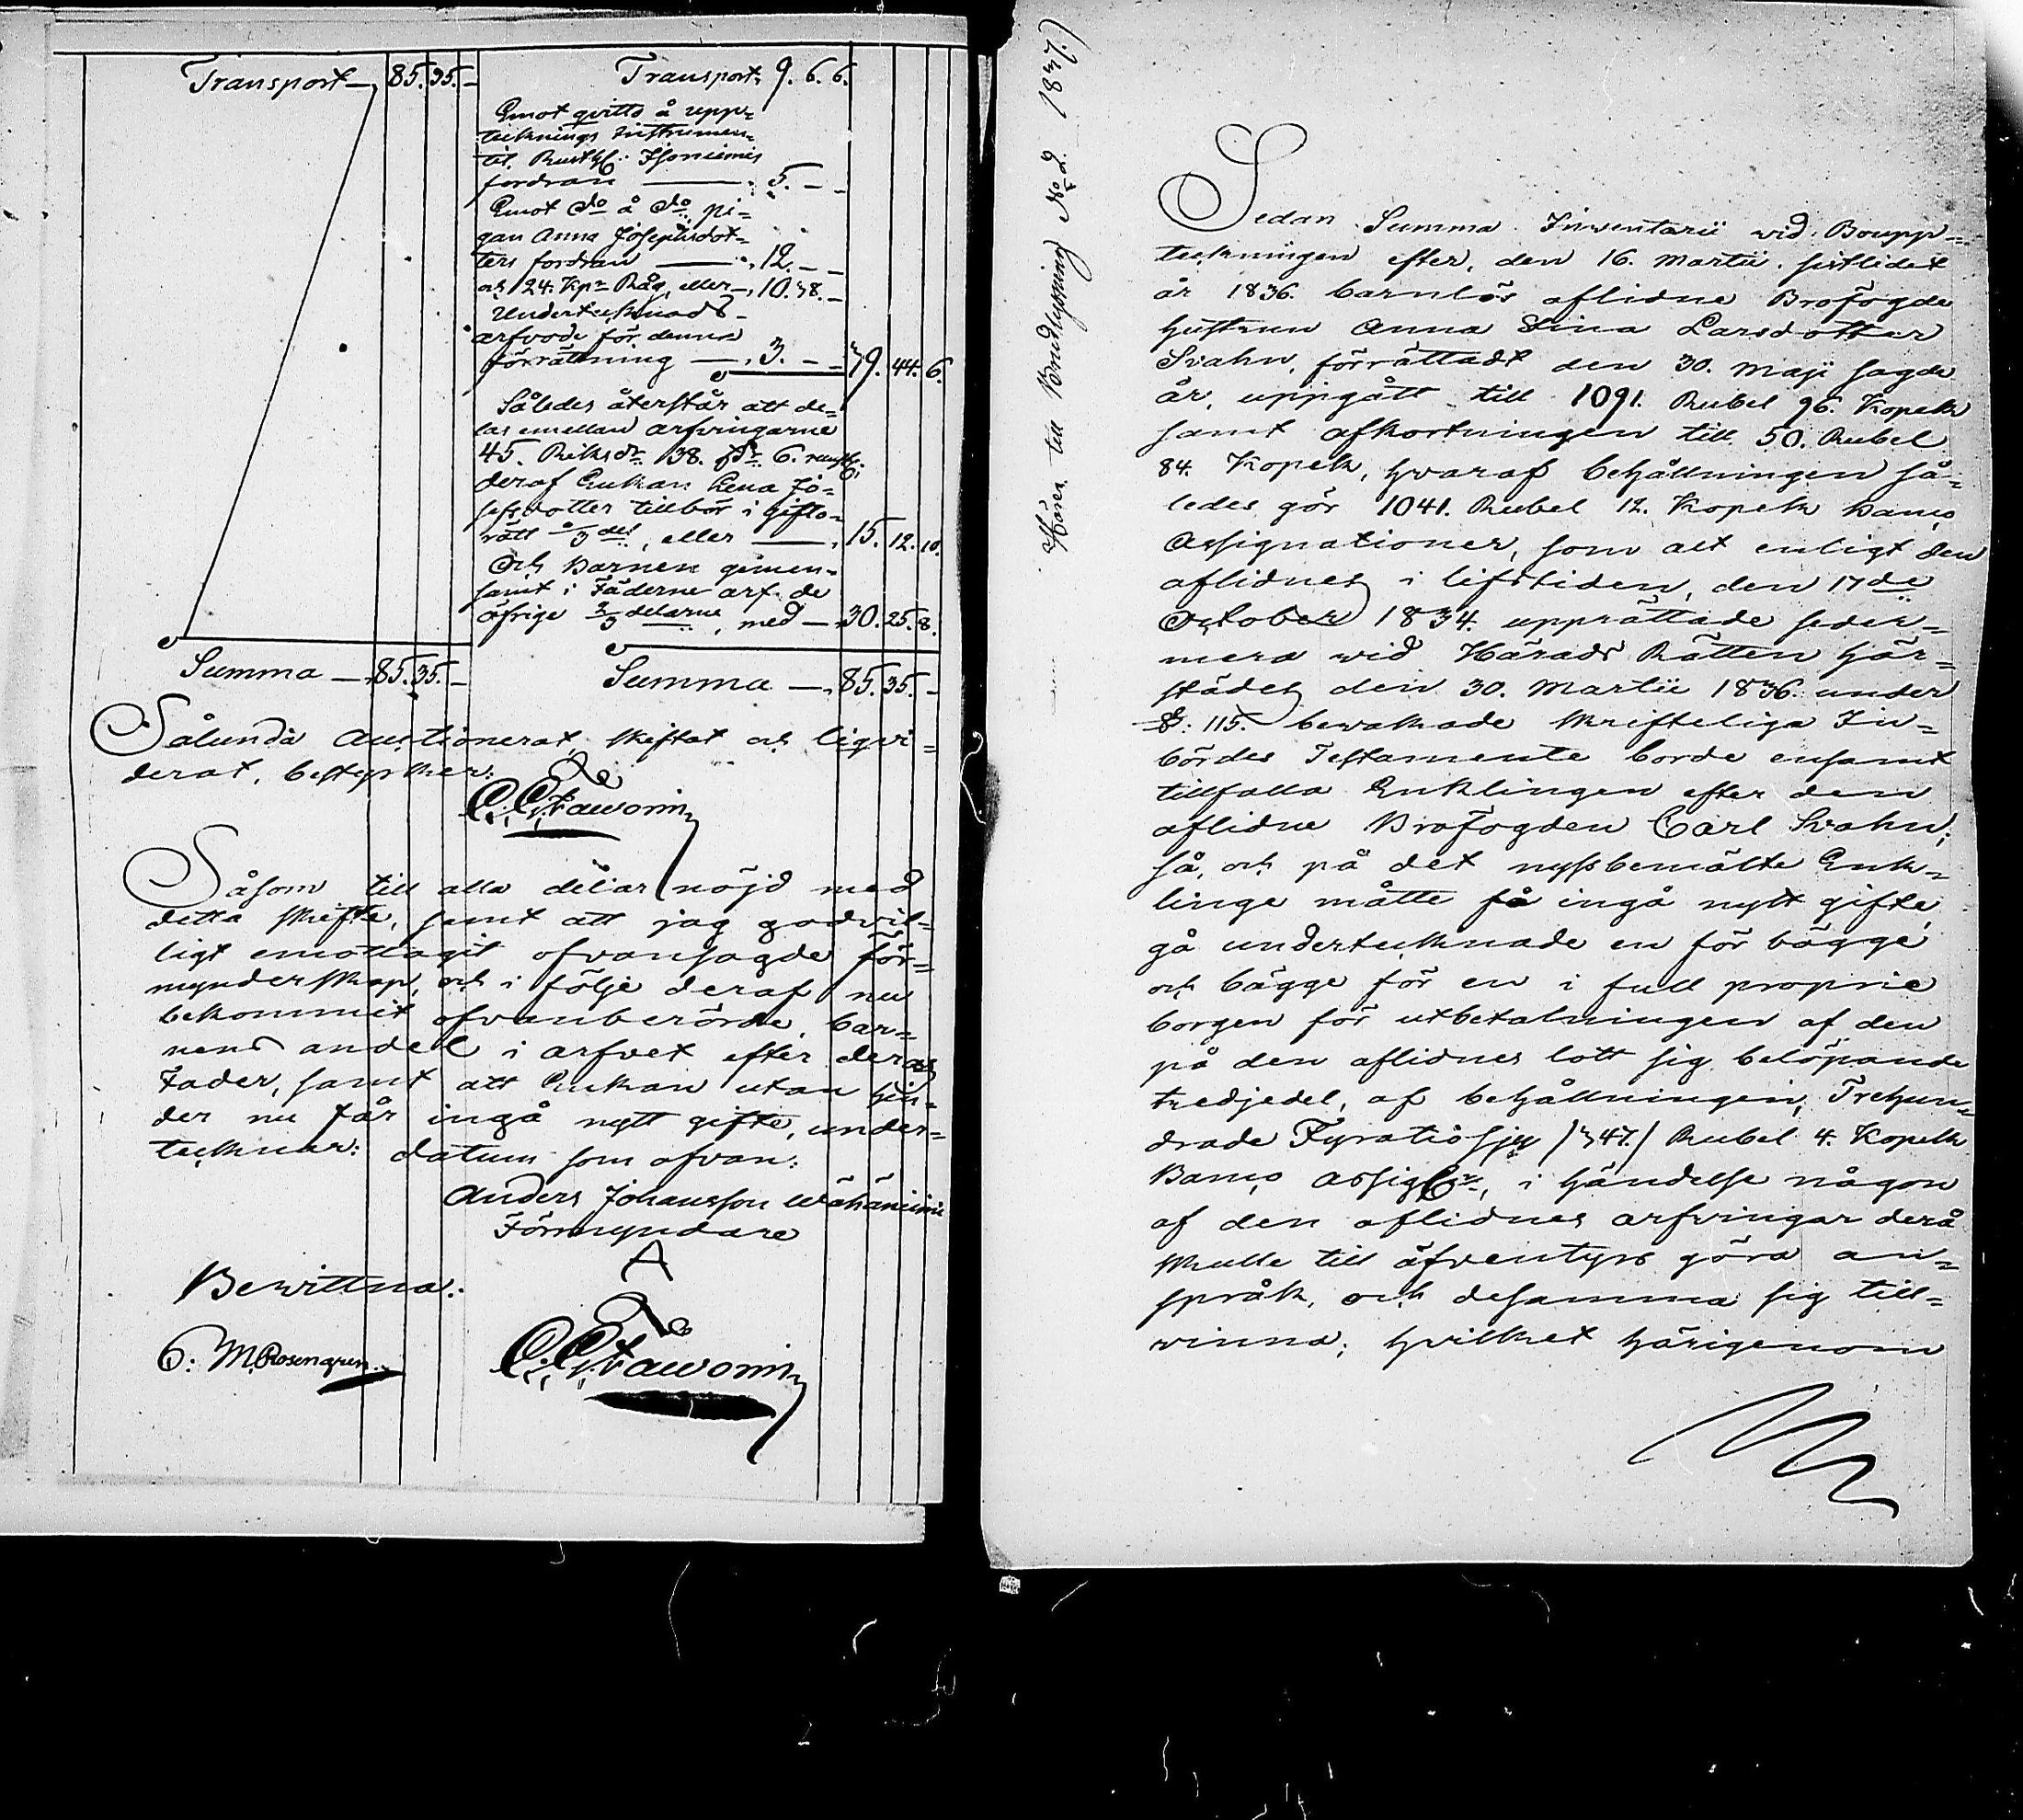 Transport 85. 35. –
Summa – 85. 35. –
Transport 9. 6. 6.
Emot qvitto å upp=
tecknings Instrumen=
tet. Rusth: Isoniemis
fordran — 5. – –
Emot do å do, pi=
gan Anna Josephsdot=
ters fordran — 12. – –
och 24. Kpr Råg, eller – 10. 38. –
Undertecknads
arfvode för denna
förrättning — 3. – – 39. 44. 6.
Således återstår att de=
las emellan arfvingarne
45. Riksdr 38. sdr 6. runst:
deraf Enkan Lena Jo=
sefsdotter tillbör i gifto=
rätt 1/3 del, eller — 15. 12. 10.
Och Barnen gemen=
samt i Fäderne arf de
öfrige 2/3 delarne, med — 30. 25. 8.
Summa — 85. 35. –
Sålunda Auctionerat, skiftat och liqvi=
derat, bestyrker:
Såsom till alla delar nöjd med
detta skifte, samt att jag godvil=
ligt emottagit ofvansagde för=
mynderskap, och i följe deraf nu
bekommit ofvanberörde, bar=
nens andel i arfvet efter deras
Fader, samt att Enkan utan hin=
der nu får ingå nytt gifte, under=
tecknar: datum som ofvan:
Anders Johansson Wähäniemi
Förmyndare
A
Bewittna:
C: M. Rosengren
Hörer till Kundlysning No 2. 1837.)
Sedan Summa Inventarii wid Boupp=
teckningen efter, den 16. Martii sistlidet
år 1836. barnlös aflidne Brofogde
hustrun Anna Stina Larsdotter
Svahn, förrättadt den 30. Maji sagde
år, uppgått till 1091. Rubel 96. Kopek
samt afkortningen till 50. Rubel
84. Kopek, hvaraf behållningen så=
ledes gör 1041. Rubel 12. Kopek Banco
Assignationer, som alt enligt den
aflidnes i lifstiden, den 17de
October 1834. upprättade seder=
mera wid Härads Rätten här=
städes den 30. Martii 1836. under
§: 115. bewakade skrifteliga In=
bördes Testamente borde ensamt
tillfalla Enklingen efter den
aflidne Brofogden Carl Svahn;
så, och på det nyssbemälte Enk=
linge måtte få ingå nytt gifte,
gå undertecknade en för bägge
och bägge för en i full proprie
borgen för utbetalningen af den
på den aflidnes lott sig belöpande
tredjedel, af behållningen, Trehun=
drade Fyratiosju /347./ Rubel 4. Kopek
Banco Assigner, i händelse någon
af den aflidnes arfvingar derå
skulle till äfventyrs göra an=
språk, och desamma sig till=
winna; hvilket härigenom